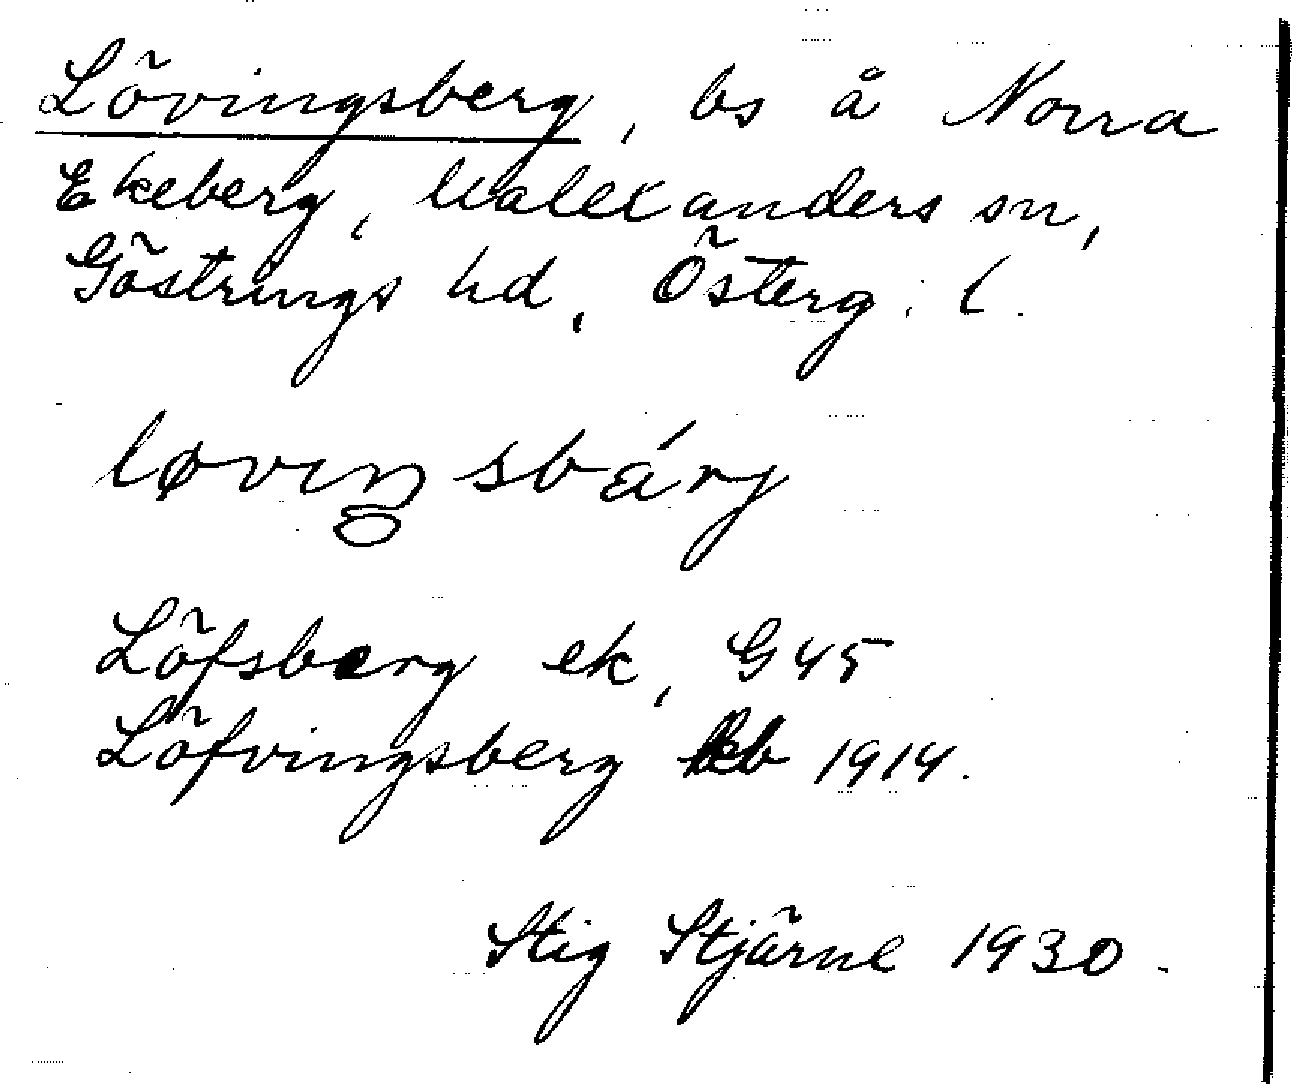 Lövingsberg, bs å Norra
Ekeberg, Wallanders sn,
Göstrings hd, Österg. l.
løviŋsbárj
Löfsberg ek, G 45
Löfvingsberg kb 1914.
Stig Stjärne 1930.